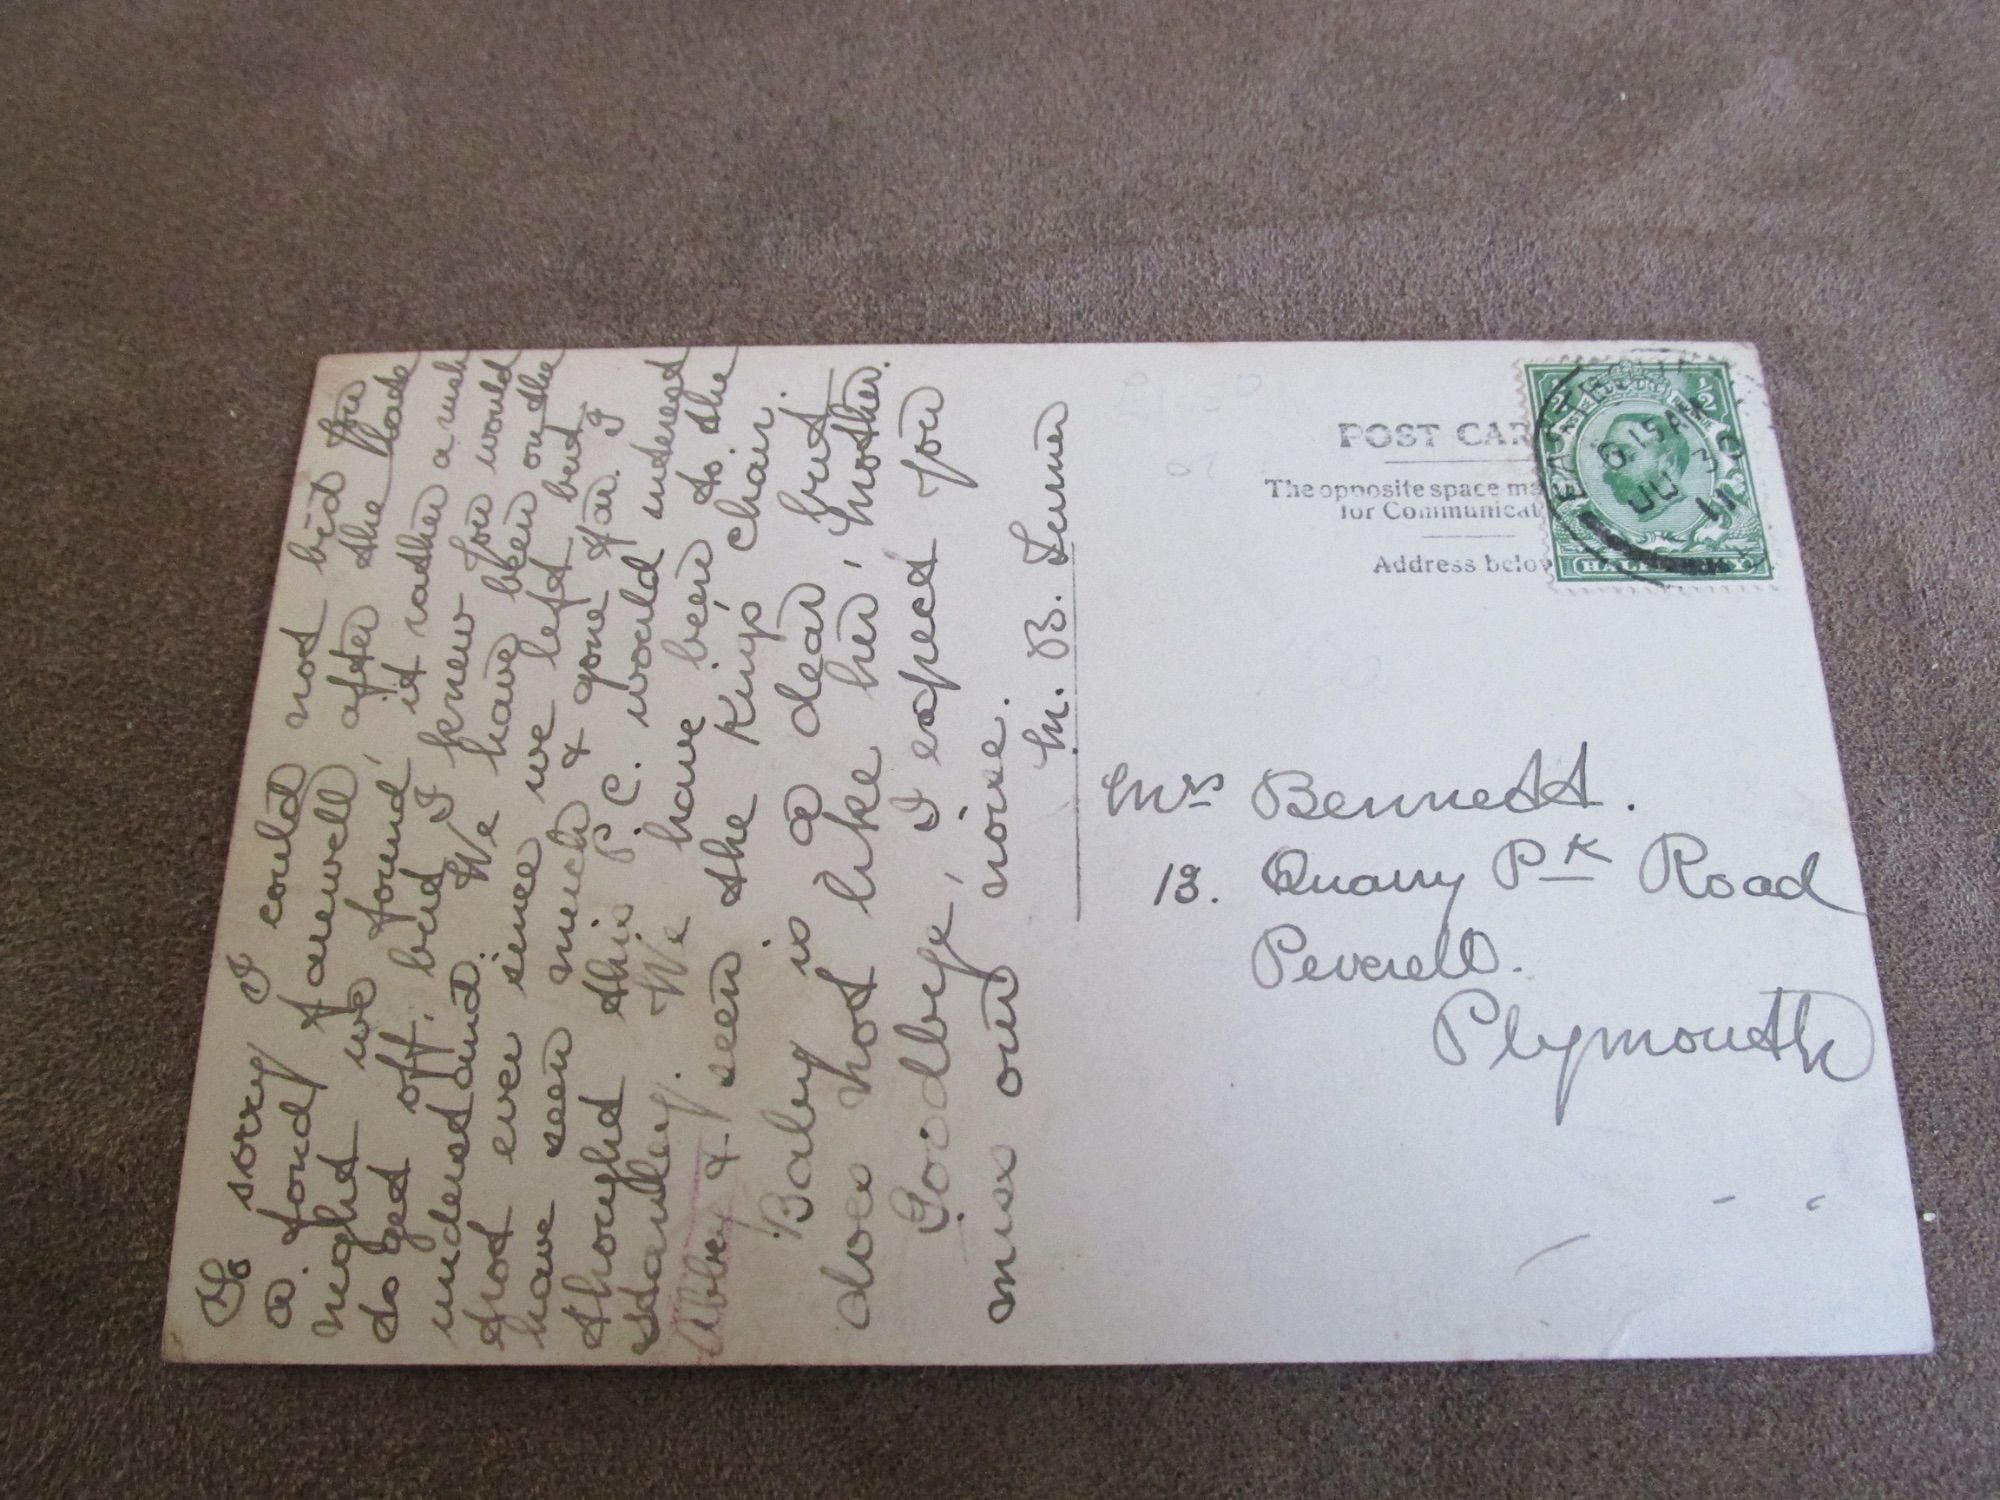 So sorry I could not bid you
a fond farewell, after the Haste
might we found, it rather a rush
to get off, but I knew you would
understand. We have been on the
trot ever since we left but I
have seen much & gone far. I
thought this P.C. would interest
Stanley. We have been to the
Abbey & seen the Kings chair.
Baby is a dear, but
does not like her, Mother.
Goodbye, I expect you
miss our noise.
M. B.
POST CAR
The opposite space ma
for Communicat
Address below
EAST
6.15 AM
JU 3
11
HALFPENNY
Mrs Bennett.
13. Quarry Pk Road
Peverell.
Plymouth